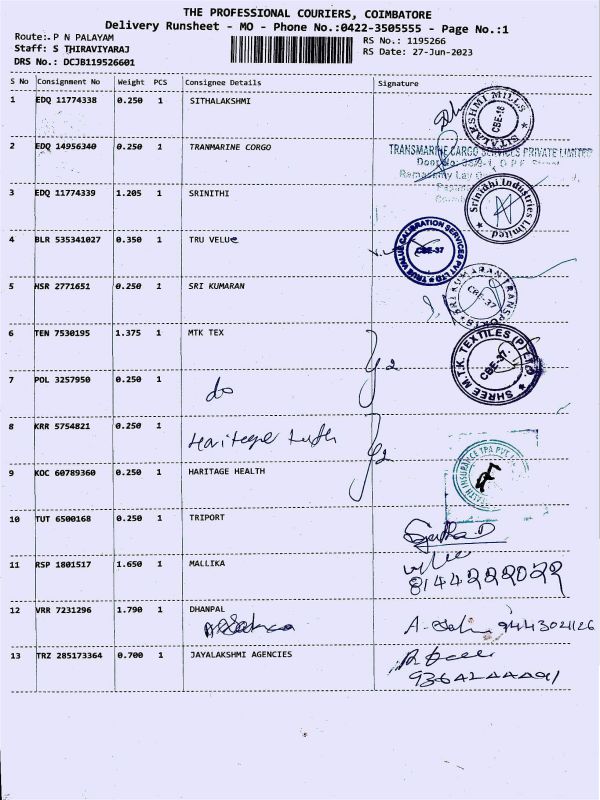 THE PROFESSIONAL COURIERS, COIMBATORE
Delivery Runsheet - MO - Phone No.:0422-3505555 - Page No.:1
Route:. P N PALAYAM
RS No.: 1195266
Staff: S THIRAVIYARAJ
RS Date: 27-Jun-2023
DRS No.: DCJB119526601
S No Consignment No Weight PCS Consignee Details Signature
1 EDQ 11774338 0.250 1 SITHALAKSHMI
SITALAKSHMI MILLS CBE-18
2 EDQ 14956340 0.250 1 TRANMARINE CARGO
TRANSMARINE CARGO SERVICES PRIVATE LIMITED
3 EDQ 11774339 1.205 1 SRINITHI
Srinidhi Industries Limited
4 BLR 535341027 0.350 1 TRU VELUE
TRUE VALUE CALIBRATION SERVICES PVT LTD CBE-37
5 HSR 2771651 0.250 1 SRI KUMARAN
SRI KUMARAN TRANSPORTS CBE-37
6 TEN 7530195 1.375 1 MTK TEX
SHREE M.T.K. TEXTILES (P) LTD. CBE-37.
7 POL 3257950 0.250 1 do
8 KRR 5754821 0.250 1
9 KOC 60789360 0.250 1 HARITAGE HEALTH
HEALTH INSURANCE TPA PVT
10 TUT 6500168 0.250 1 TRIPORT
11 RSP 1801517 1.650 1 MALLIKA
8144222022
12 VRR 7231296 1.790 1 DHANPAL
9443021126
13 TRZ 285173364 0.700 1 JAYALAKSHMI AGENCIES